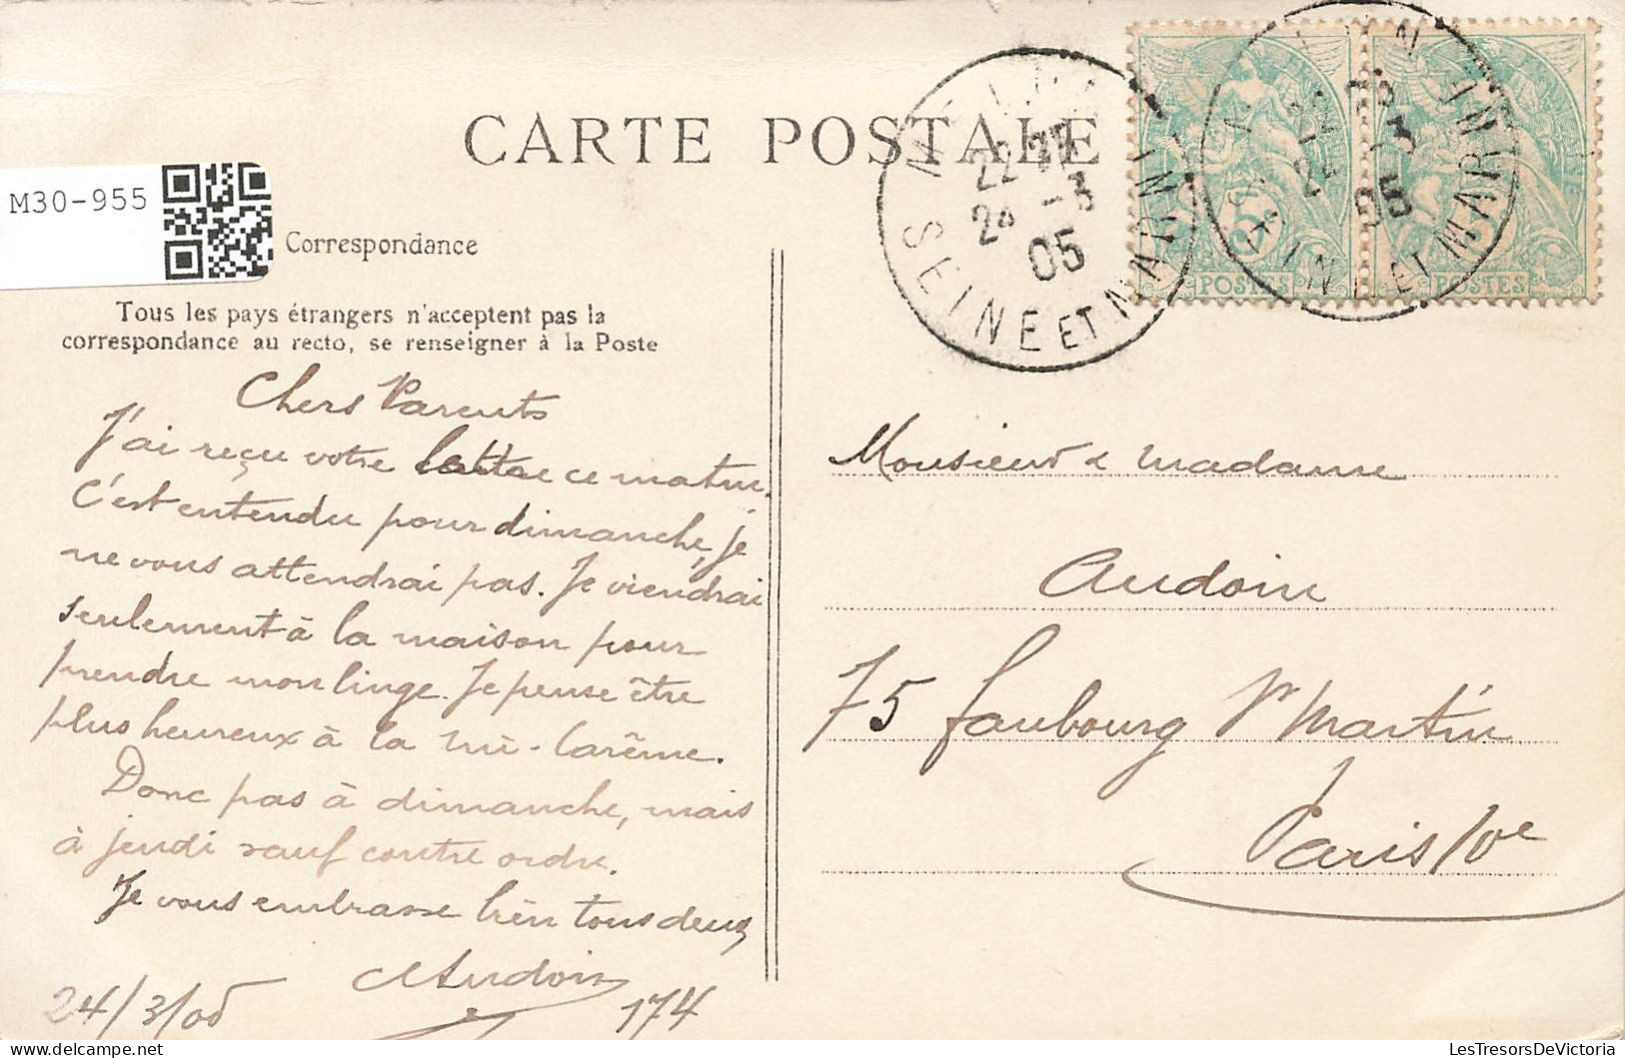 CARTE POSTALE
M30-955
Correspondance
Tous les pays étrangers n'acceptent pas la
correspondance au recto, se renseigner à la Poste
22 35
24 -3
05
SEINE ET MARNE
24
-3
05
ET MARNE
5
POSTES
5
POSTES
Chers Parents
J'ai reçu votre lettre ce matin.
C'est entendu pour dimanche, je
ne vous attendrai pas. Je viendrai
seulement à la maison pour
prendre mon linge. Je pense être
plus heureux à la mi-Carême.
Donc pas à dimanche, mais
à jeudi sauf contre ordre.
Je vous embrasse bien tous deux
Audoin
24/3/05 174
Monsieur & madame
Audoin
75 faubourg St Martin
Paris / Xe
LesTresorsDeVictoria